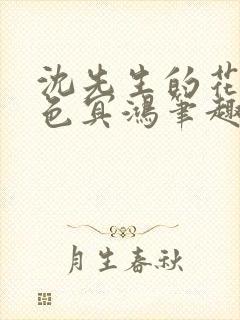 沈先生的花
色冥鸿笔趣
月生春秋